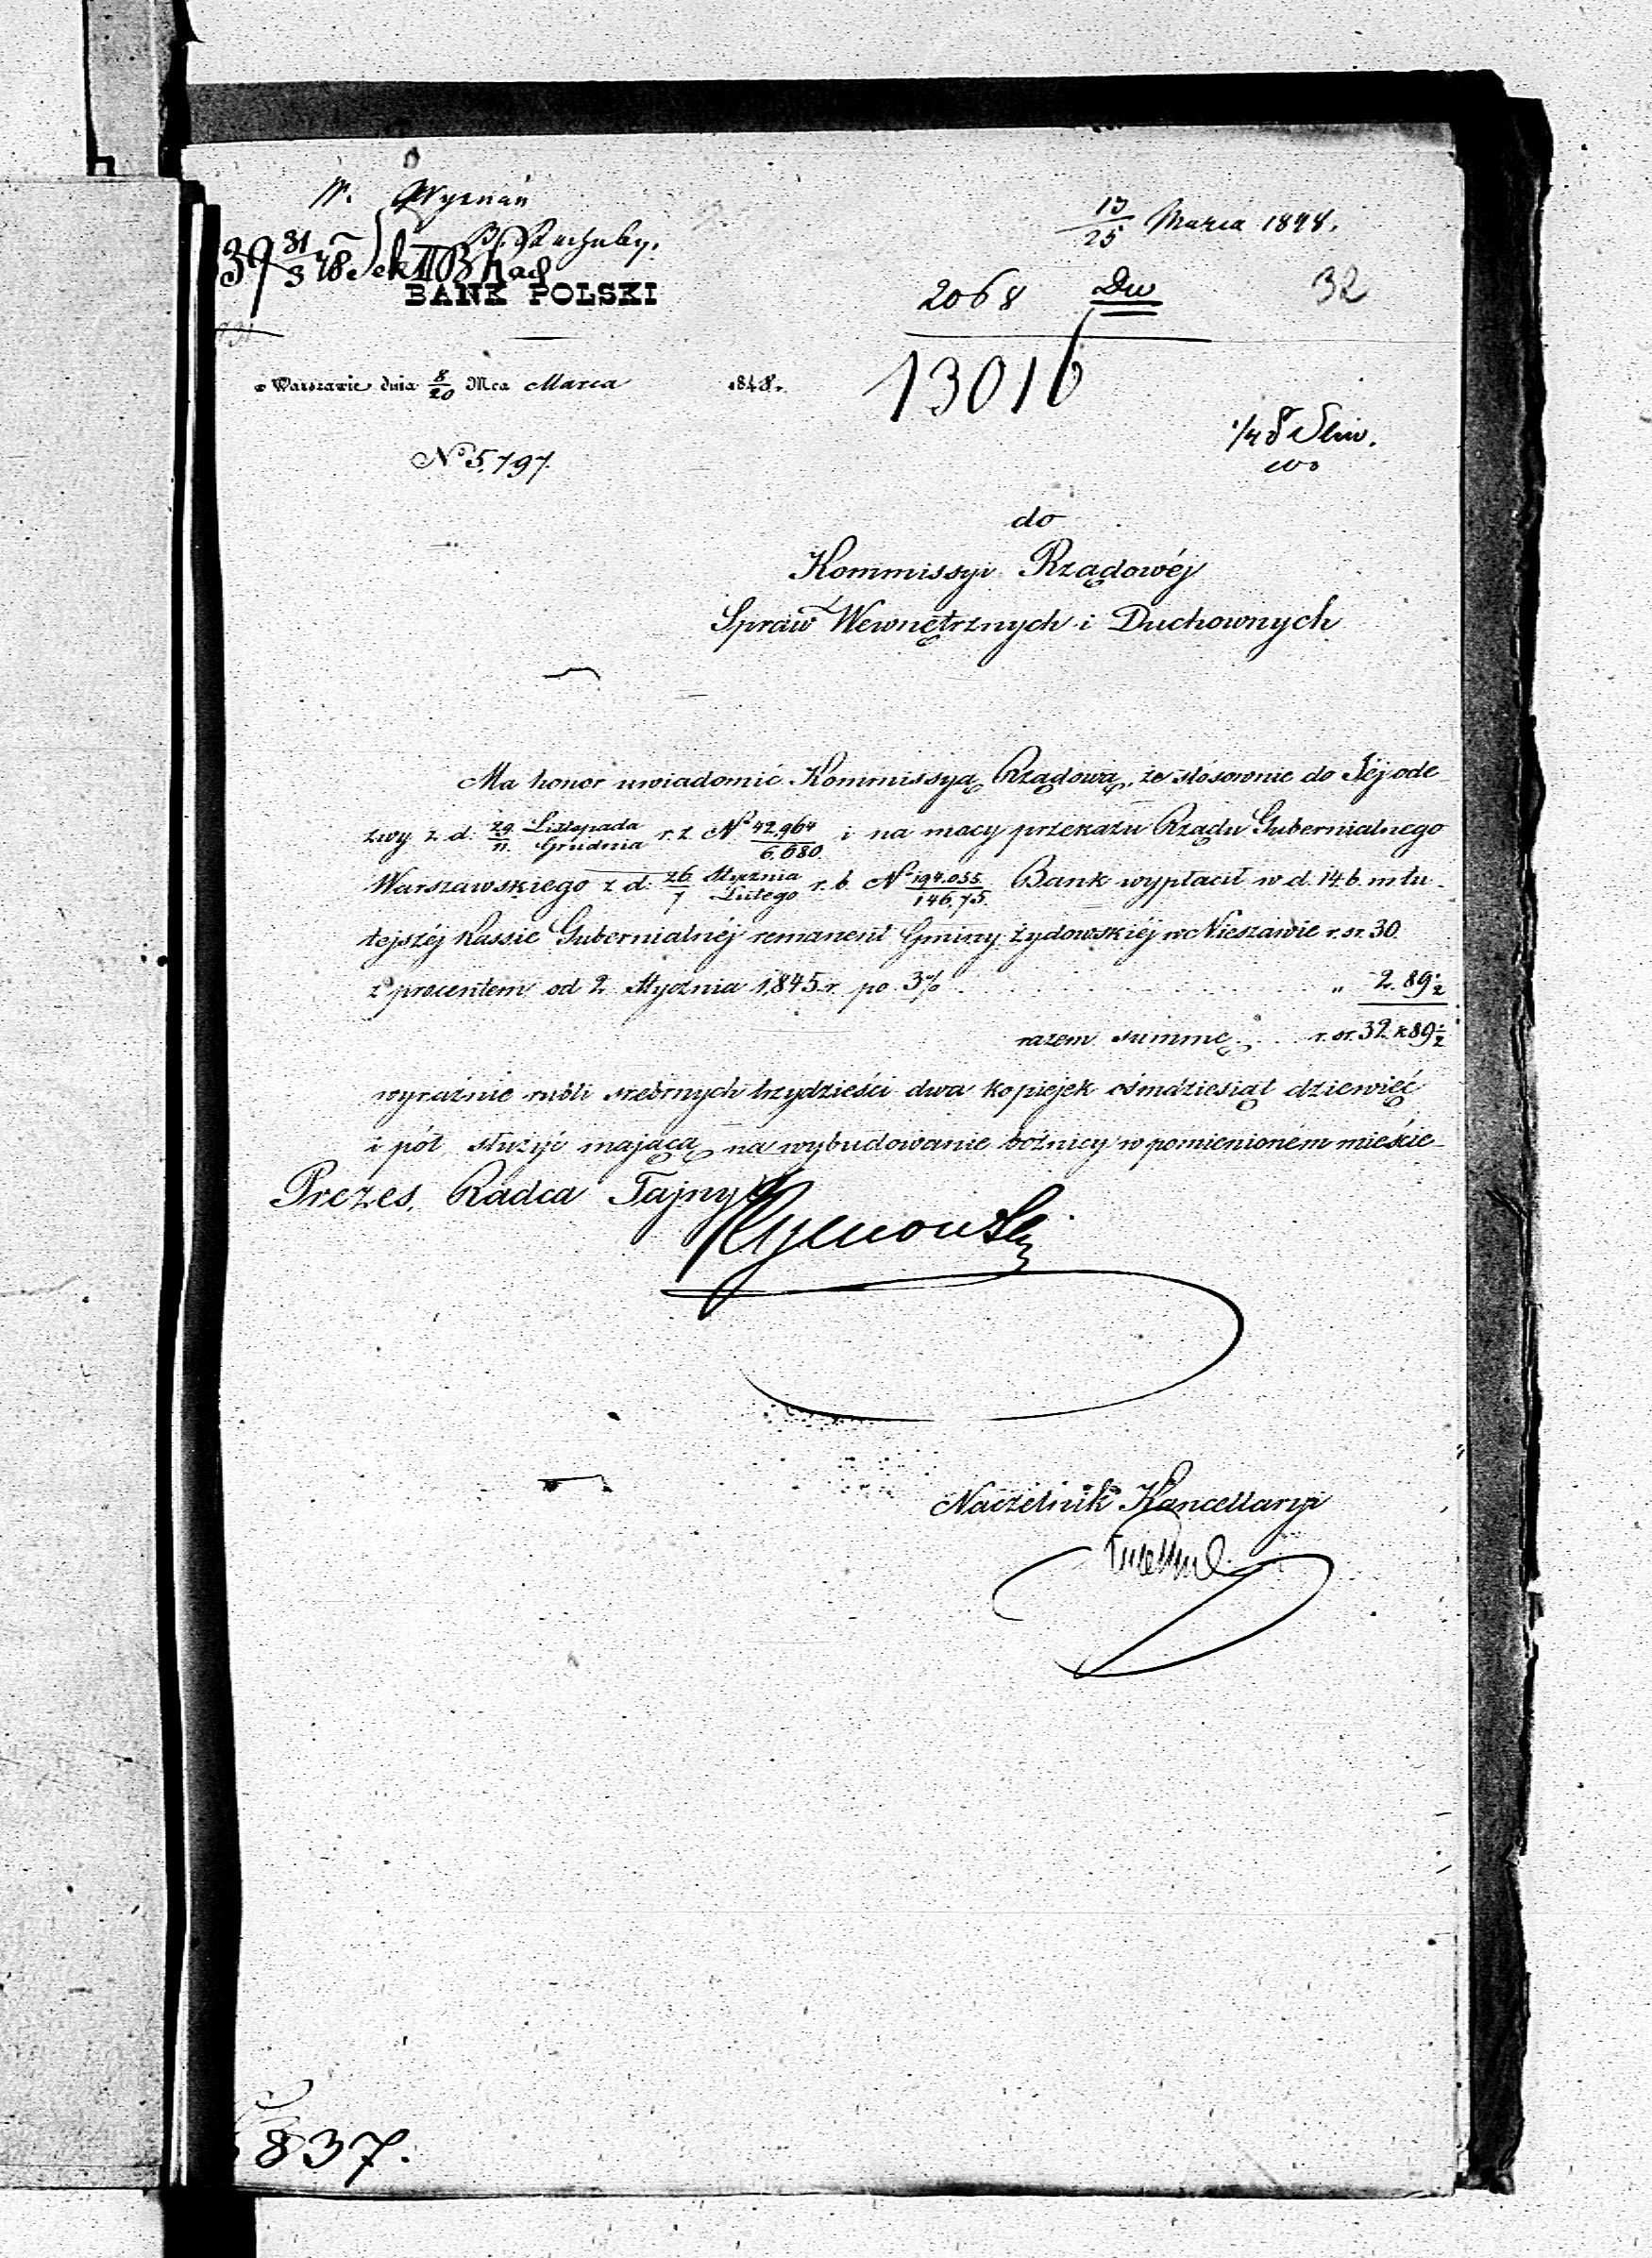 W. Wyznań
13/25 Marca 1848.
39 31/3 48 Sekt II B
BANK POLSKI
2068 Dw 32
13016
w Warszawie dnia 8/20 Mca Marca 1848.
N° 5,797.
do
Kommissyi Rządowéj
Spraw Wewnętrznych i Duchownych
Ma honor uwiadomić Kommissyą Rządową, że stosownie do Jéj ode-
zwy z d. 29/11 Listopada/Grudnia r. z. N° 42,964/6,680 i na mocy przekazu Rządu Gubernialnego
Warszawskiego z d. 26/7 Stycznia/Lutego r. b. N° 194,055/146,75. Bank wypłacił w d. 14 b. m. tu-
tejszéj Kassie Gubernialnéj remanent Gminy żydowskiéj w Nieszawie r. sr. 30.
z procentem od 2 Stycznia 1,845 r. po 3% " 2. 89 1/2
razem summę r. sr. 32 k 89 1/2
wyraźnie rubli srebrnych trzydzieści dwa kopiejek ośmdziesiąt dziewięć
i pół służyć mającą na wybudowanie bóżnicy w pomienioném mieście
Prezes, Radca Tajny
Naczelnik Kancellaryi
837.